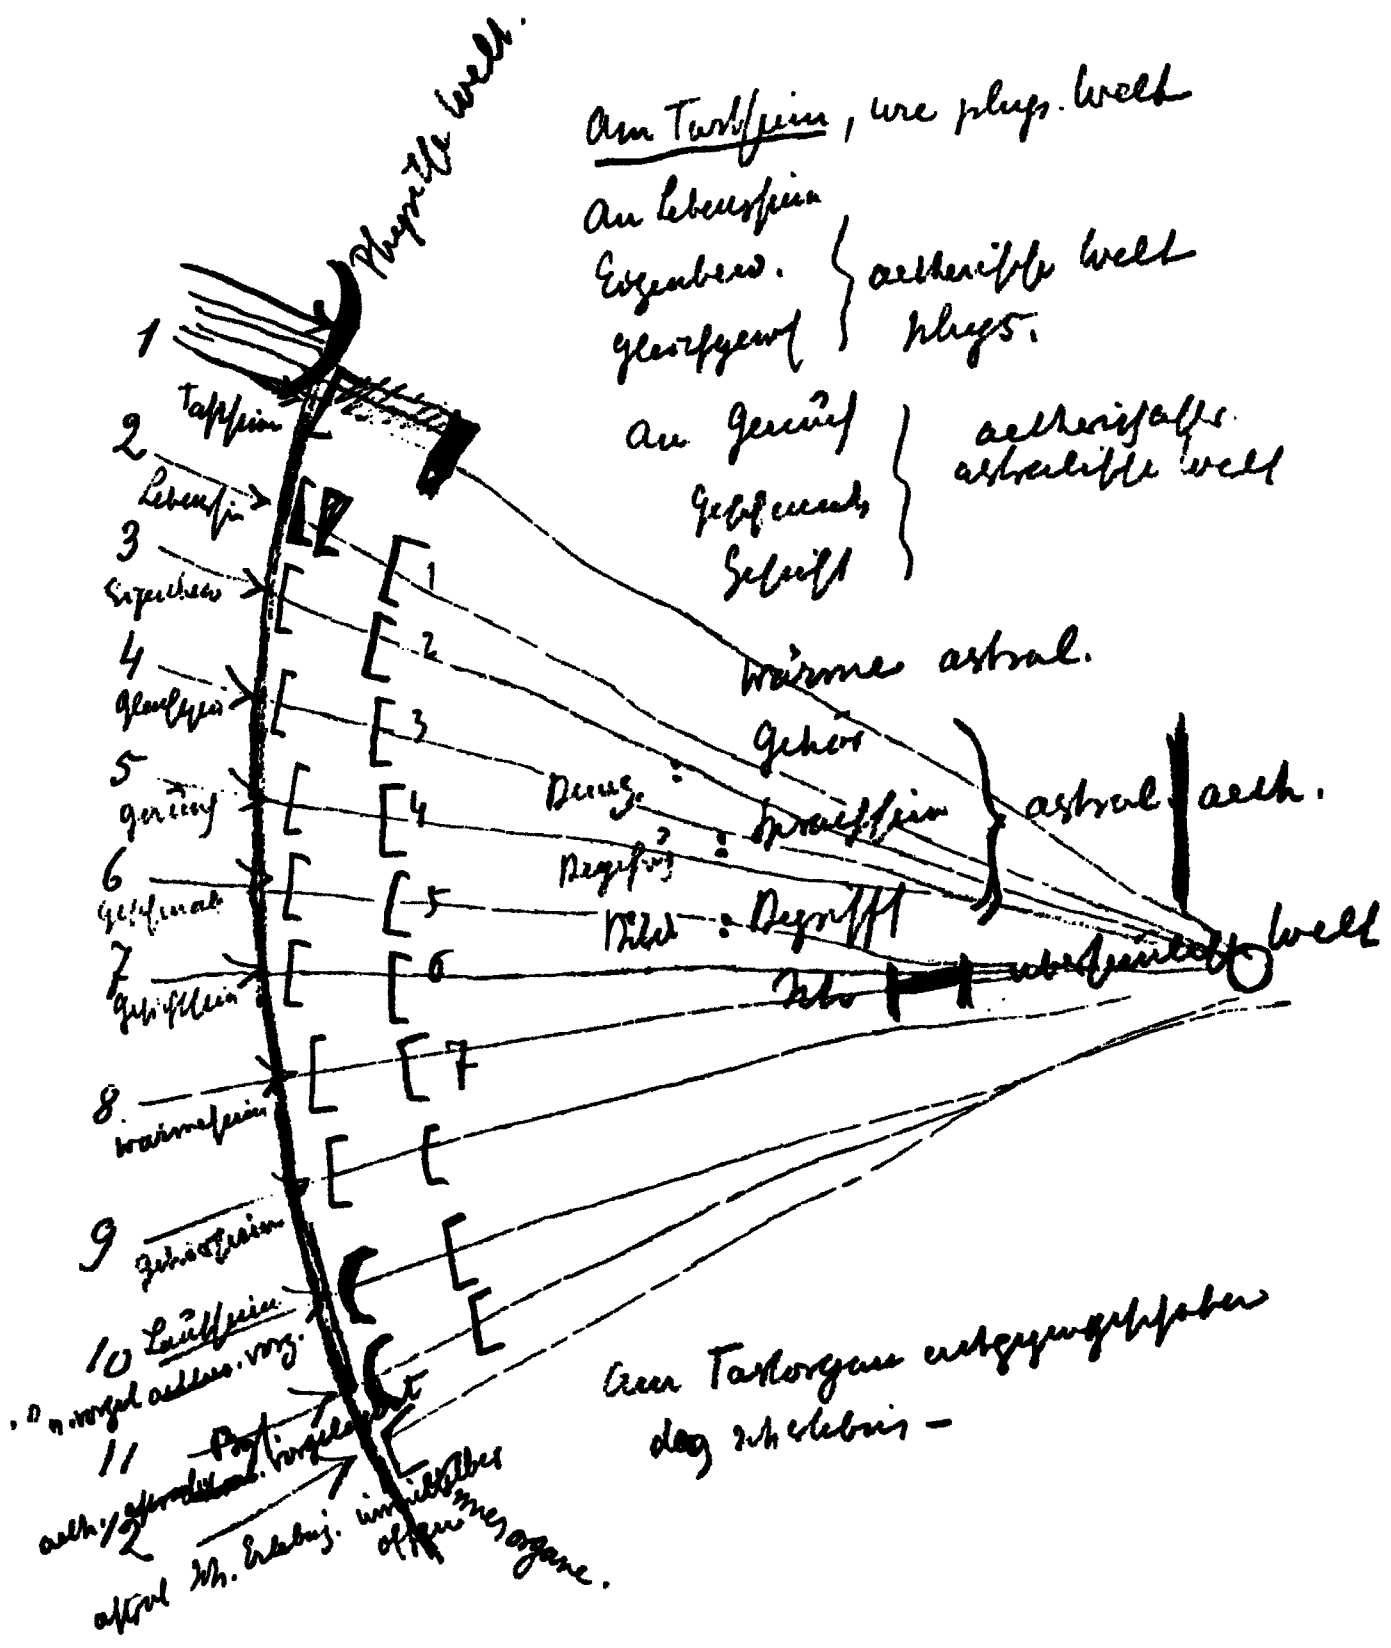 Physische Welt.
Am Tastsinn, die phys. Welt
Am Lebenssinn
Eigenbew.
Gleichgew
aetherische Welt
phys.
Am Geruch
Geschmack
Gesicht
aetherisch
astralische Welt
Wärme astral.
Gehör
Sprachsinn
Begriff
astral. aeth.
Ich
übersinnlich Welt
1
Tastsinn
2
Lebenssin
3
Eigenbew
4
Gleichgew
5
Geruch
6
Geschmack
7
Gesichtssinn
8
Wärmesinn
9
Gehörsinn
10 Lautsinn
11
12
astral Ich. Erlebnis. unmittelbar
offen
Sinnesorgane.
1
2
3
4
5
6
7
Am Tastorgan entgegengeschoben
das Icherlebnis –